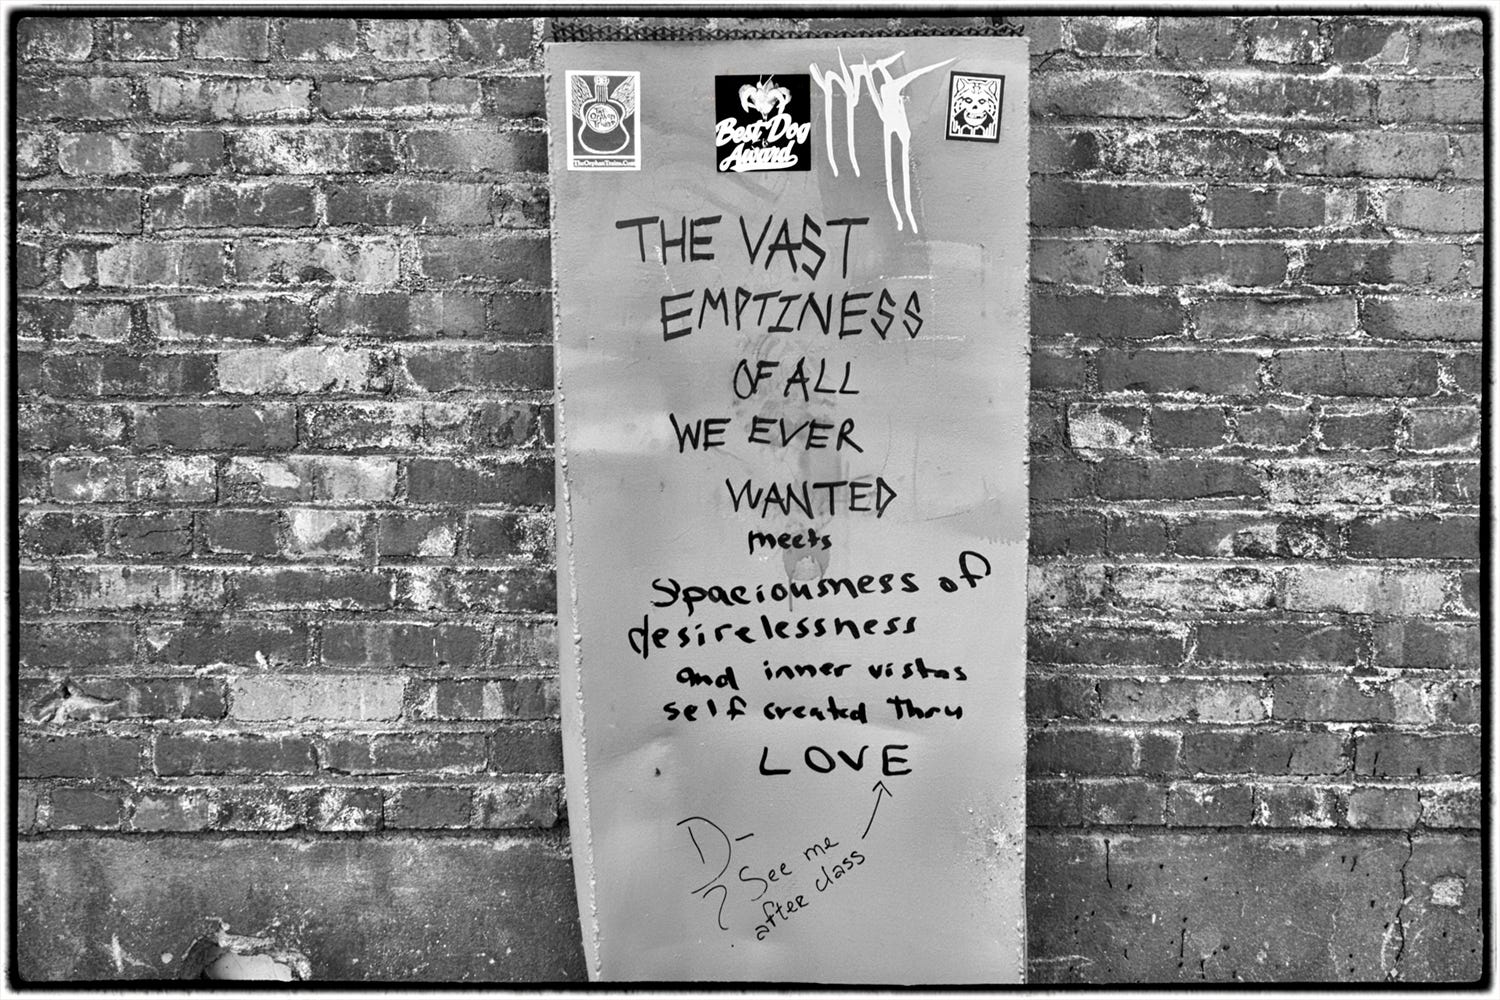 The Orphan Trains
TheOrphanTrains.Com
Best Dog
Award
THE VAST
EMPTINESS
OF ALL
WE EVER
WANTED
meets
Spaciousness of
desirelessness
and inner vistas
self created thru
LOVE
D-
?
See me
after class